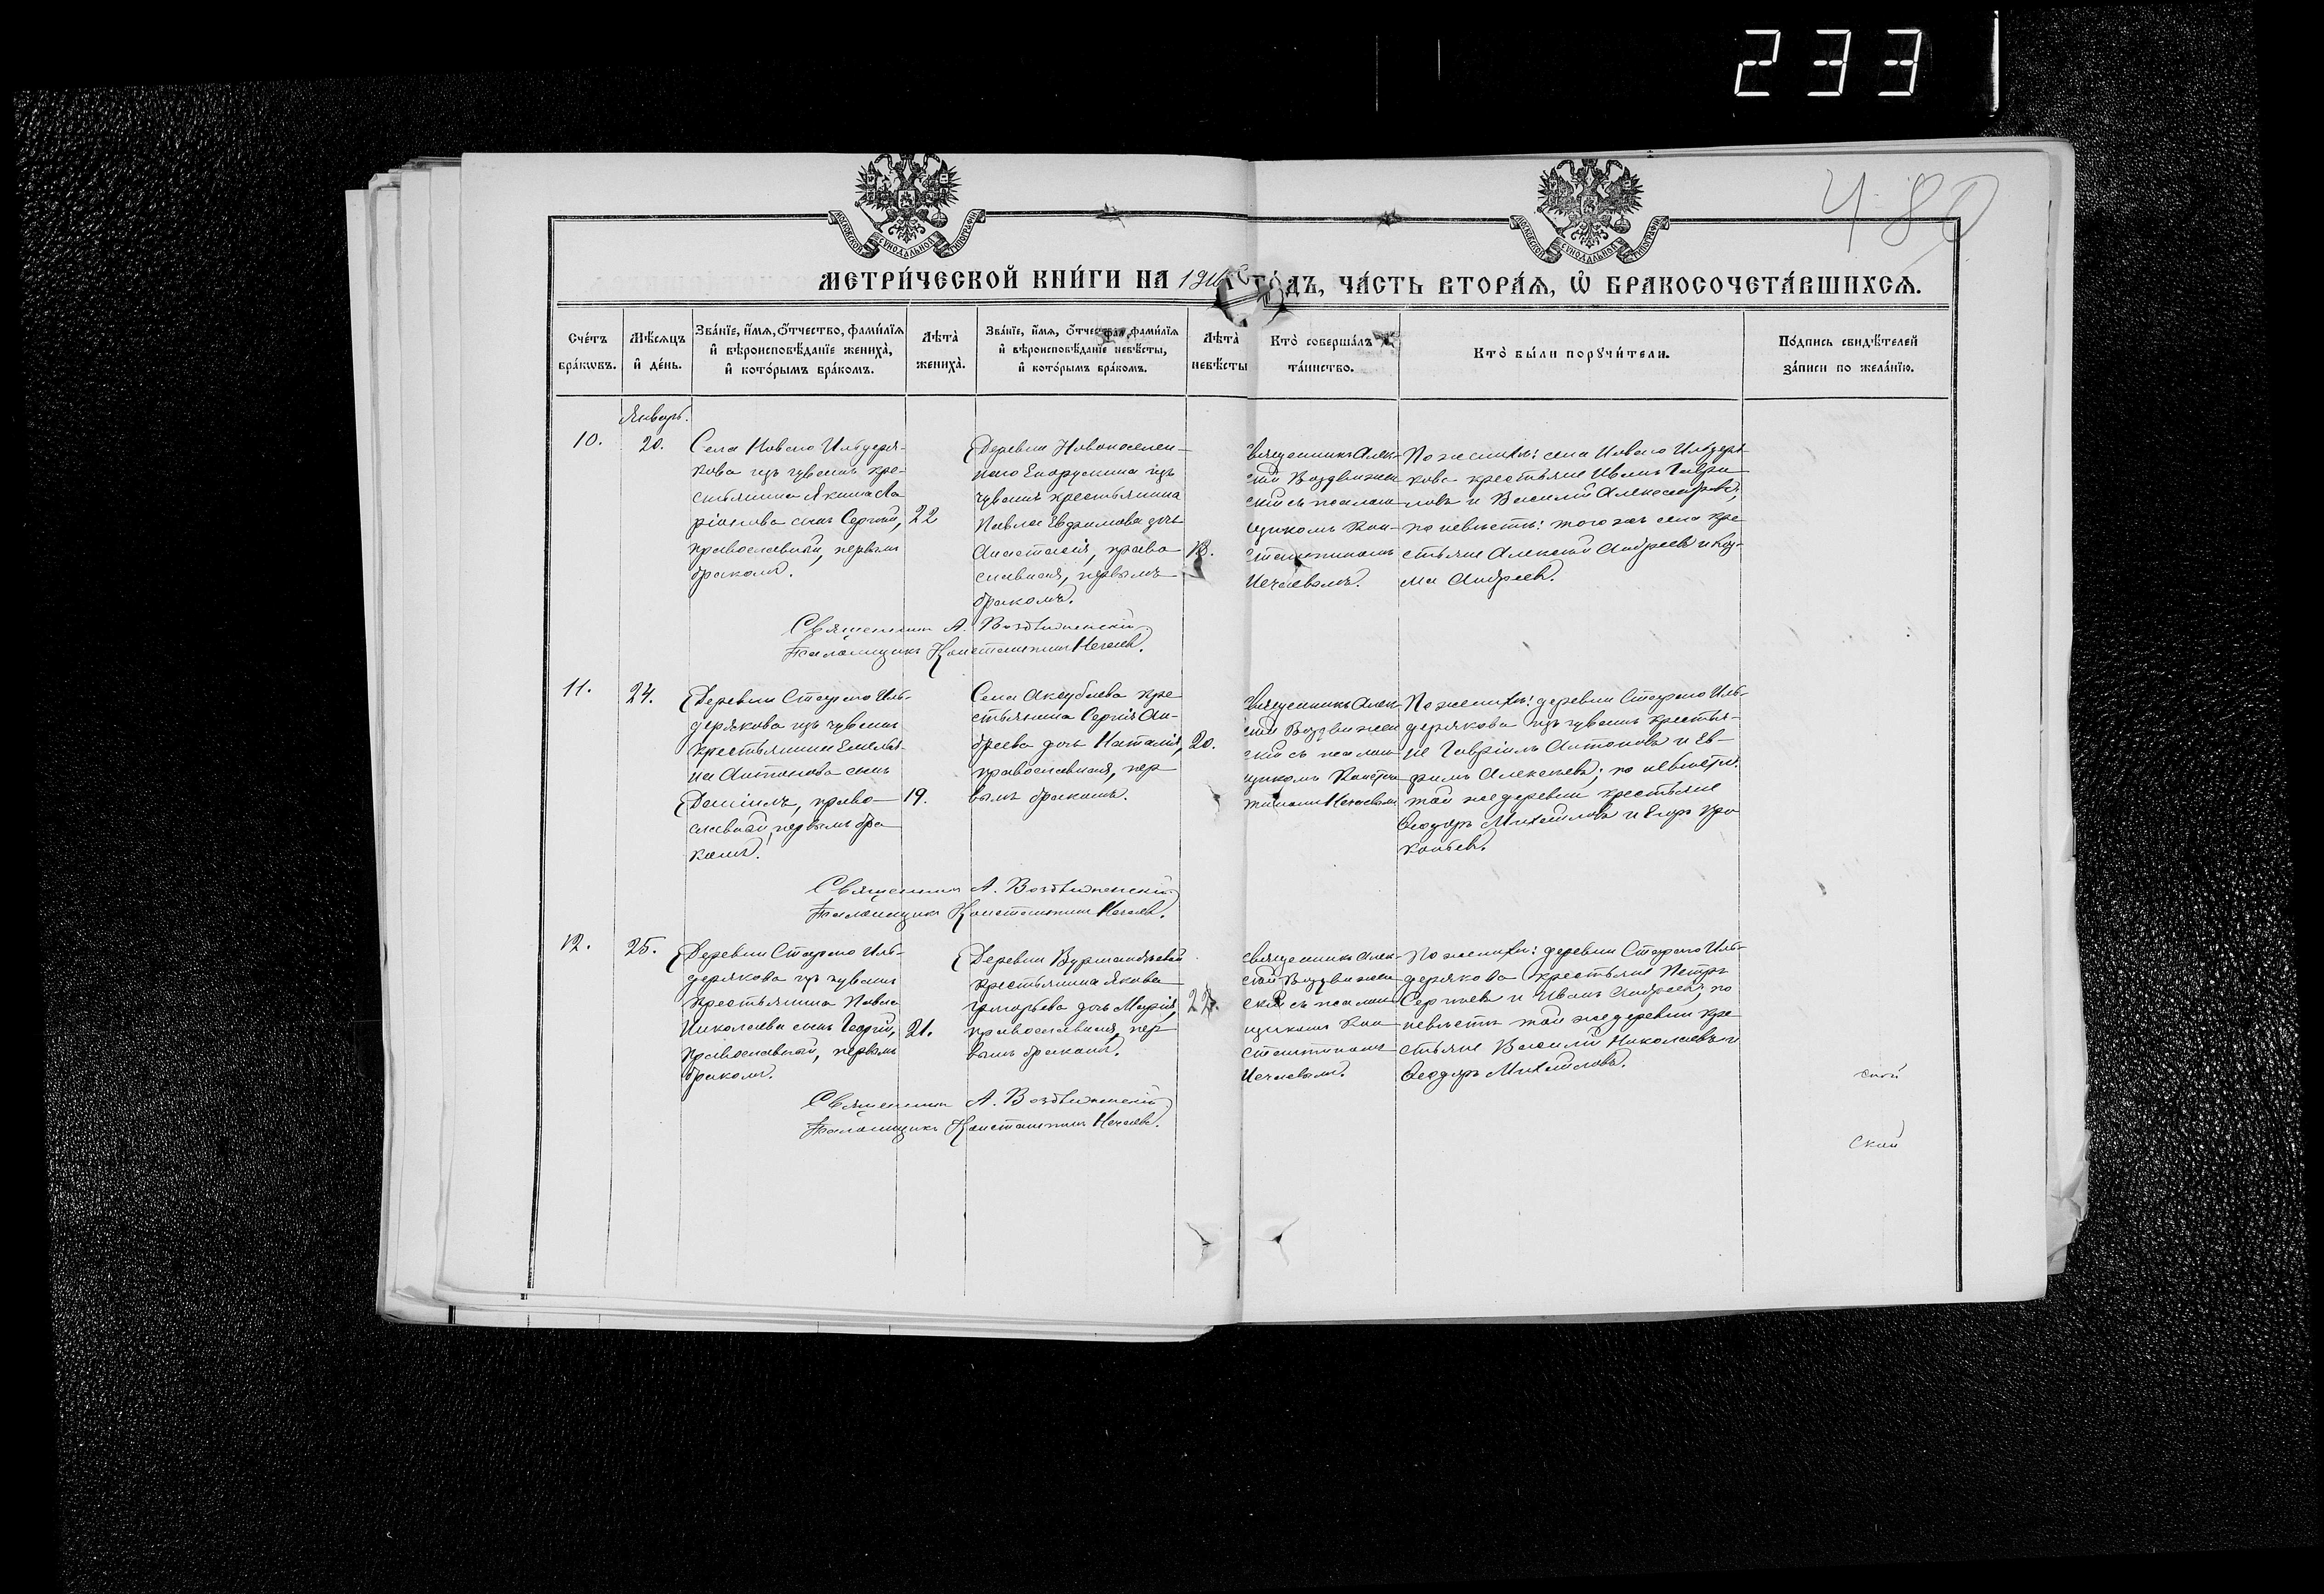 233
480
МОСКОВСКОЙ СѴНОДАЛЬНОЙ ТИПОГРАФІИ
МОСКОВСКОЙ СѴНОДАЛЬНОЙ ТИПОГРАФІИ
МЕТРИ́ЧЕСКОЙ КНИ́ГИ НА ГО́ДЪ, ЧА́СТЬ ВТОРА́Ѧ, Ѡ҆ БРАКОСОЧЕТА́ВШИХСѦ.
Сче́тъ бра́кѡвъ.
Мѣ́сѧцъ и҆ де́нь.
Зва́нїе, и҆́мѧ, ѻ҆́тчество, фами́лїѧ
и҆ вѣроисповѣ́данїе жениха̀,
и҆ кото́рымъ бра́комъ.
Лѣта̀ жениха̀.
Зва́нїе, и҆́мѧ, ѻ҆́тчество, фами́лїѧ
и҆ вѣроисповѣ́данїе невѣ́сты,
и҆ кото́рымъ бра́комъ.
Лѣта̀ невѣ́сты
Кто̀ соверша́лъ
та́инство.
Кто̀ бы́ли порꙋчи́тели.
По́дпись свидѣ́телей
за́писи по жела́нїю.
Январь.
10.
20.
Села Новаго Ильдеря-
кова изъ чувашъ кре-
стьянина Якима Ла
ріонова сынъ Сергій,
православный, первымъ
бракомъ.
22
Деревни Новопоселен-
наго изъ
чувашъ крестьянина
Павла Ефимова дочь
Анастасія, право
славная, первымъ
бракомъ.
18.
Священникъ Алек-
сѣй Воздвижен
скій съ псалом
щикомъ Кон-
стантиномъ
Нечаевымъ.
По женихѣ: села Новаго Ильдеря
кова крестьяне Иванъ Гаври
ловъ и Василій Александровъ;
по невѣстѣ: того же села кре
стьяне Алексѣй Андреевъ и Коз-
ма Андреевъ.
Священникъ А. Воздвиженскій
Псаломщикъ Константинъ Нечаевъ.
11.
24.
Деревни Стараго Иль-
дерякова изъ чувашъ
крестьянина Емелья-
на Антонова сынъ
Даніилъ, право-
славный, первымъ бра
комъ.
19.
Села Аксубаева кре
стьянина Сергія Ан-
дреева дочь Наталія,
православная, пер
вымъ бракомъ.
20.
Священникъ Алек-
сѣй Воздвижен
скій съ псалом
щикомъ Констан
тиномъ Нечаевымъ
По женихѣ: деревни Стараго Иль-
дерякова изъ чувашъ крестья-
не Гавріилъ Антоновъ и Ев-
фимъ Алексѣевъ; по невѣстѣ:
той же деревни крестьяне
Ѳеодоръ Михайловъ и Егоръ Про
копьевъ.
Священникъ А. Воздвиженскій
Псаломщикъ Константинъ Нечаевъ.
12.
25.
Деревни Стараго Иль-
дерякова изъ чувашъ
крестьянина Павла
Николаева сынъ Георгій,
православный, первымъ
бракомъ.
21.
Деревни
крестьянина Якова
Григорьева дочь Марія,
православная, пер
вымъ бракомъ.
Священникъ Алек-
сѣй Воздвижен
скій съ псалом
щикомъ Кон
стантиномъ
Нечаевымъ.
По женихѣ: деревни Стараго Иль-
дерякова крестьяне Петръ
Сергѣевъ и Иванъ Андреевъ; по
невѣстѣ той же деревни кре
стьяне Василій Николаевъ и
Ѳеодоръ Михайловъ.
Священникъ А. Воздвиженскій
Псаломщикъ Константинъ Нечаевъ.